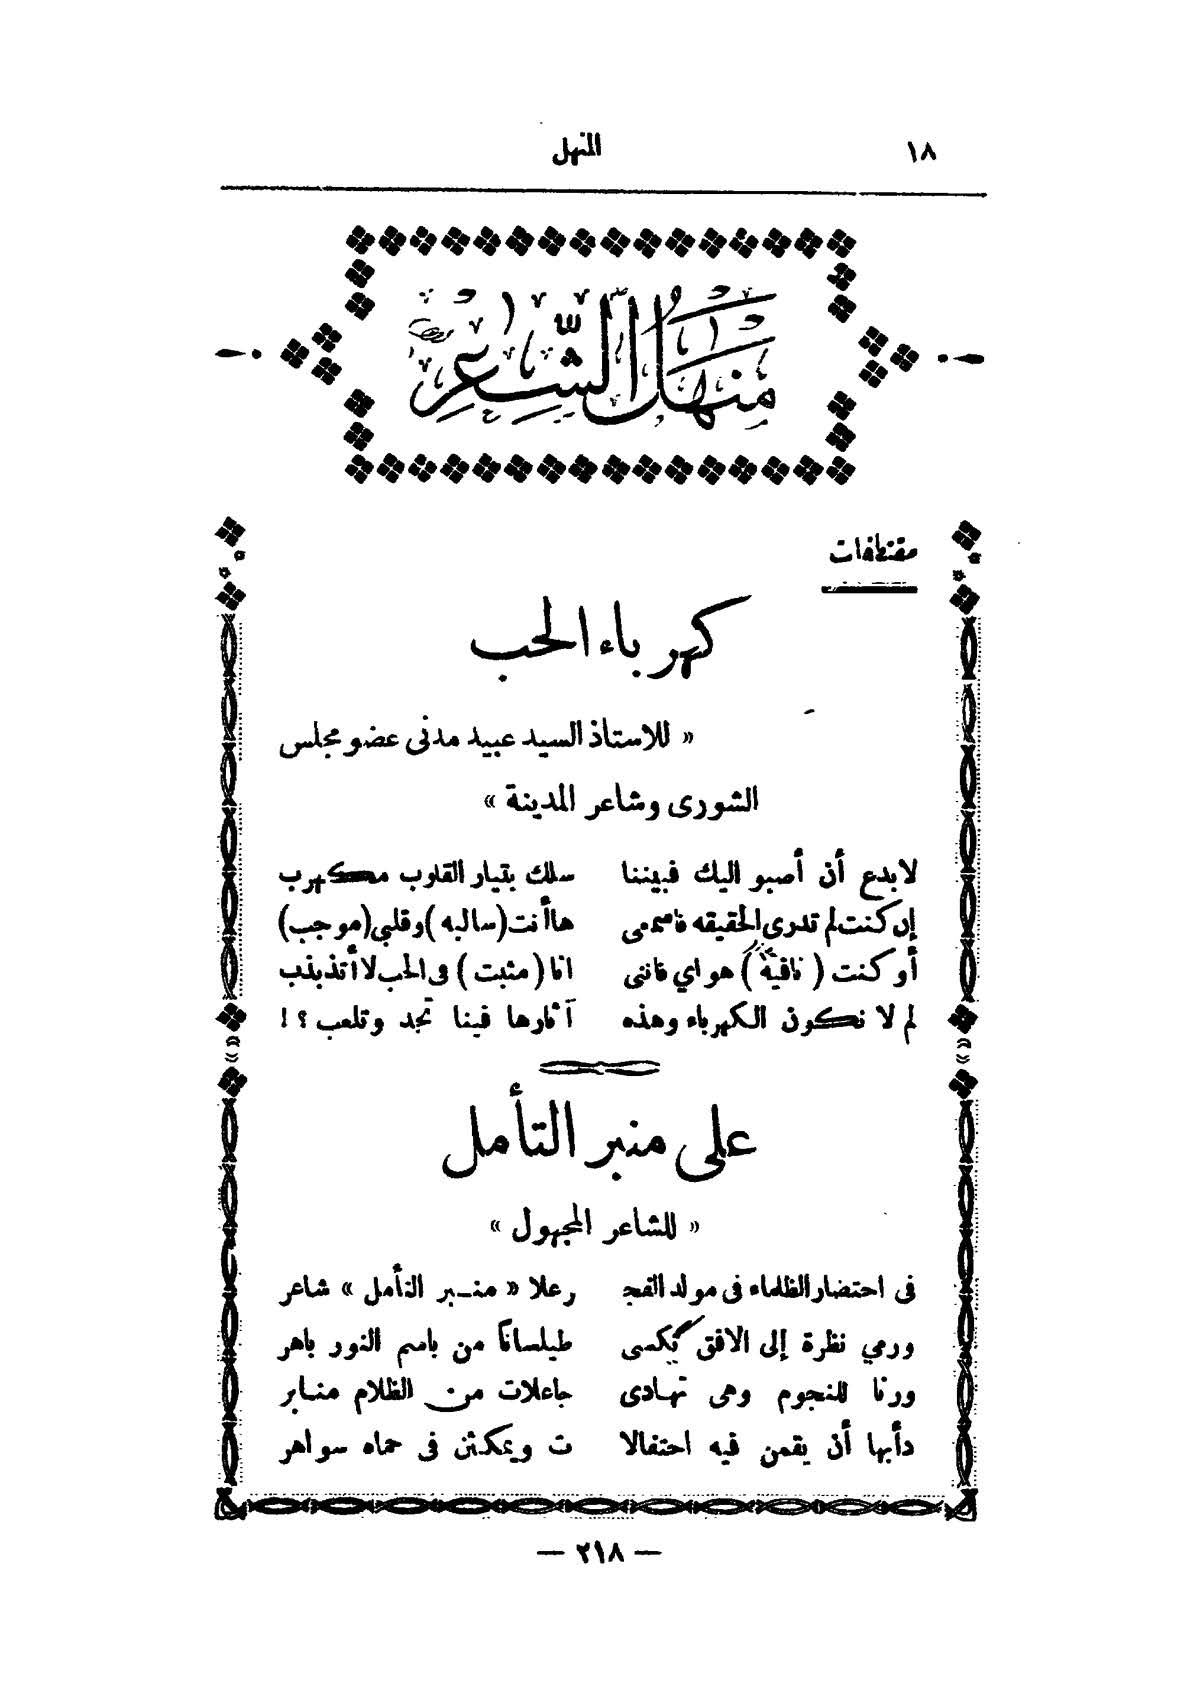 ١٨ المنهل
منهل الشاعر
مقتطفات
كهرباء الحب
« للاستاذ السيد عبيد مدنى عضو مجلس
الشورى وشاعر المدينة »
لابدع أن أصبو اليك فبيننا سلك بقيار القلوب مكهرب
إن كنت لم تدرى الحقيقه فاسمعى هاأنت (سالبه) وقلبي (موجب)
أو كنت ( نافية ) هواي فاننى انا ( مثبت ) فى الحب لا أتذبذب
لم لا نكون الكهرباء وهذه آثارها فينا تجد وتلعب ؟ !
على منبر التأمل
« للشاعر المجهول »
فى احتضار الظلماء فى مولد الفجـ ر علا « منـبر التأمل » شاعر
ورمي نظرة إلى الافق تكسى طيلسانا من باسم النور باهر
ورنا للنجوم وهى تهادى جاعلات من الظلام منابر
دأبها أن يقمن فيه احتفالا ت ويمكثن فى حماه سواهر
— ٢١٨ —